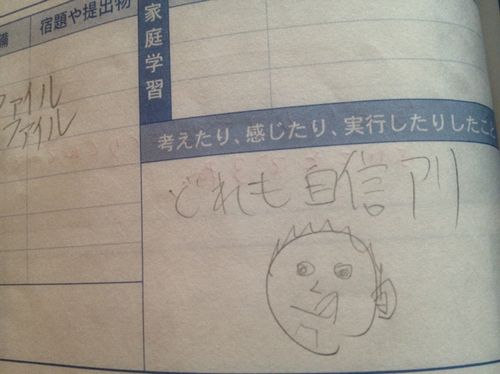 備
宿題や提出物
家庭学習
ファイル
ファイル
考えたり、感じたり、実行したりしたこ
どれも自信アリ